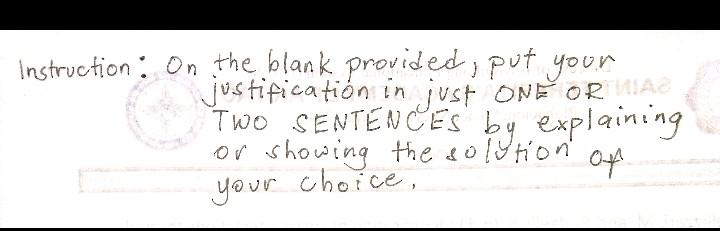 Instruction: On the blank provided, put your
justification in just ONE OR
TWO SENTENCES by explaining
or showing the solution of
your choice.